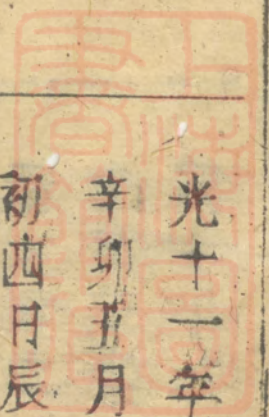 光十一年
辛卯五月
初四日辰